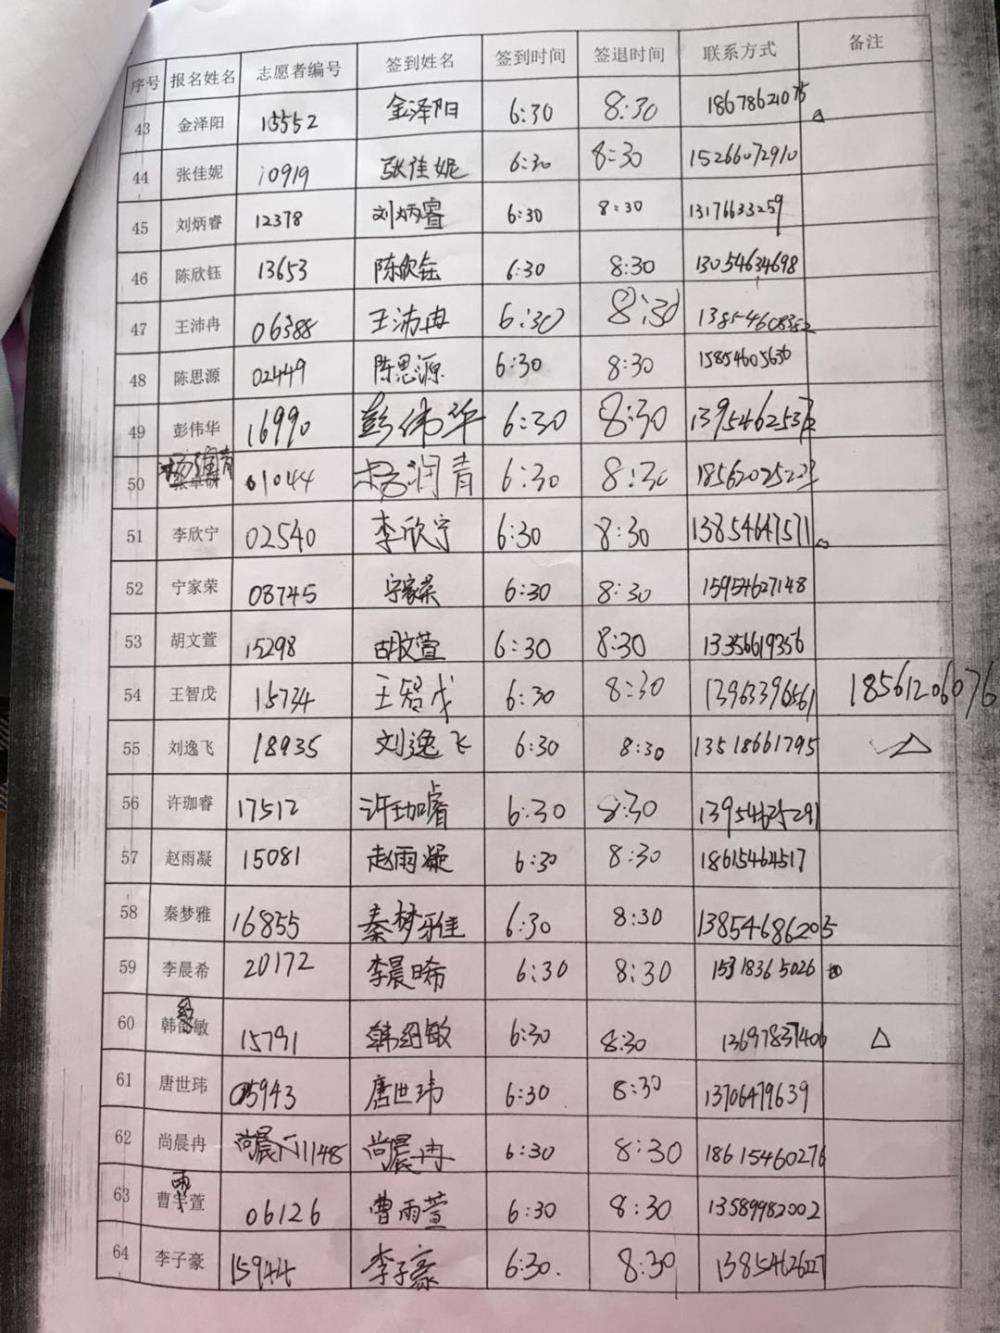 序号 报名姓名 志愿者编号 签到姓名 签到时间 签退时间 联系方式 备注
43 金泽阳 15552 金泽阳 6:30 8:30 18678621075 △
44 张佳妮 10919 张佳妮 6:30 8:30 15266072910
45 刘炳睿 12378 刘炳睿 6:30 8:30 13176633259
46 陈欣钰 13653 陈欣钰 6:30 8:30 13054634698
47 王沛冉 06388 王沛冉 6:30 8:30
48 陈思源 02449 陈思源 6:30 8:30 15854605636
49 彭伟华 16990 彭伟华 6:30 8:30
50 杨润青 01044 杨润青 6:30 8:30
51 李欣宁 02540 李欣宁 6:30 8:30 13854647571
52 宁家荣 08745 宁家荣 6:30 8:30 15954627148
53 胡文萱 15298 胡文萱 6:30 8:30 13356619356
54 王智戊 15734 王智戊 6:30 8:30 13963396561 18561206076
55 刘逸飞 18935 刘逸飞 6:30 8:30 13518661795 △
56 许珈睿 17512 许珈睿 6:30 8:30 13954625291
57 赵雨凝 15081 赵雨凝 6:30 8:30 18615464517
58 秦梦雅 16855 秦梦雅 6:30 8:30 13854686203
59 李晨希 20172 李晨希 6:30 8:30 15318365026
60 韩绍敏 15791 韩绍敏 6:30 8:30 13697837406 △
61 唐世玮 05943 唐世玮 6:30 8:30 13706479639
62 尚晨冉 尚晨 11148 尚晨冉 6:30 8:30 18615460276
63 曹雨萱 06126 曹雨萱 6:30 8:30 13589982002
64 李子豪 15944 李子豪 6:30. 8:30